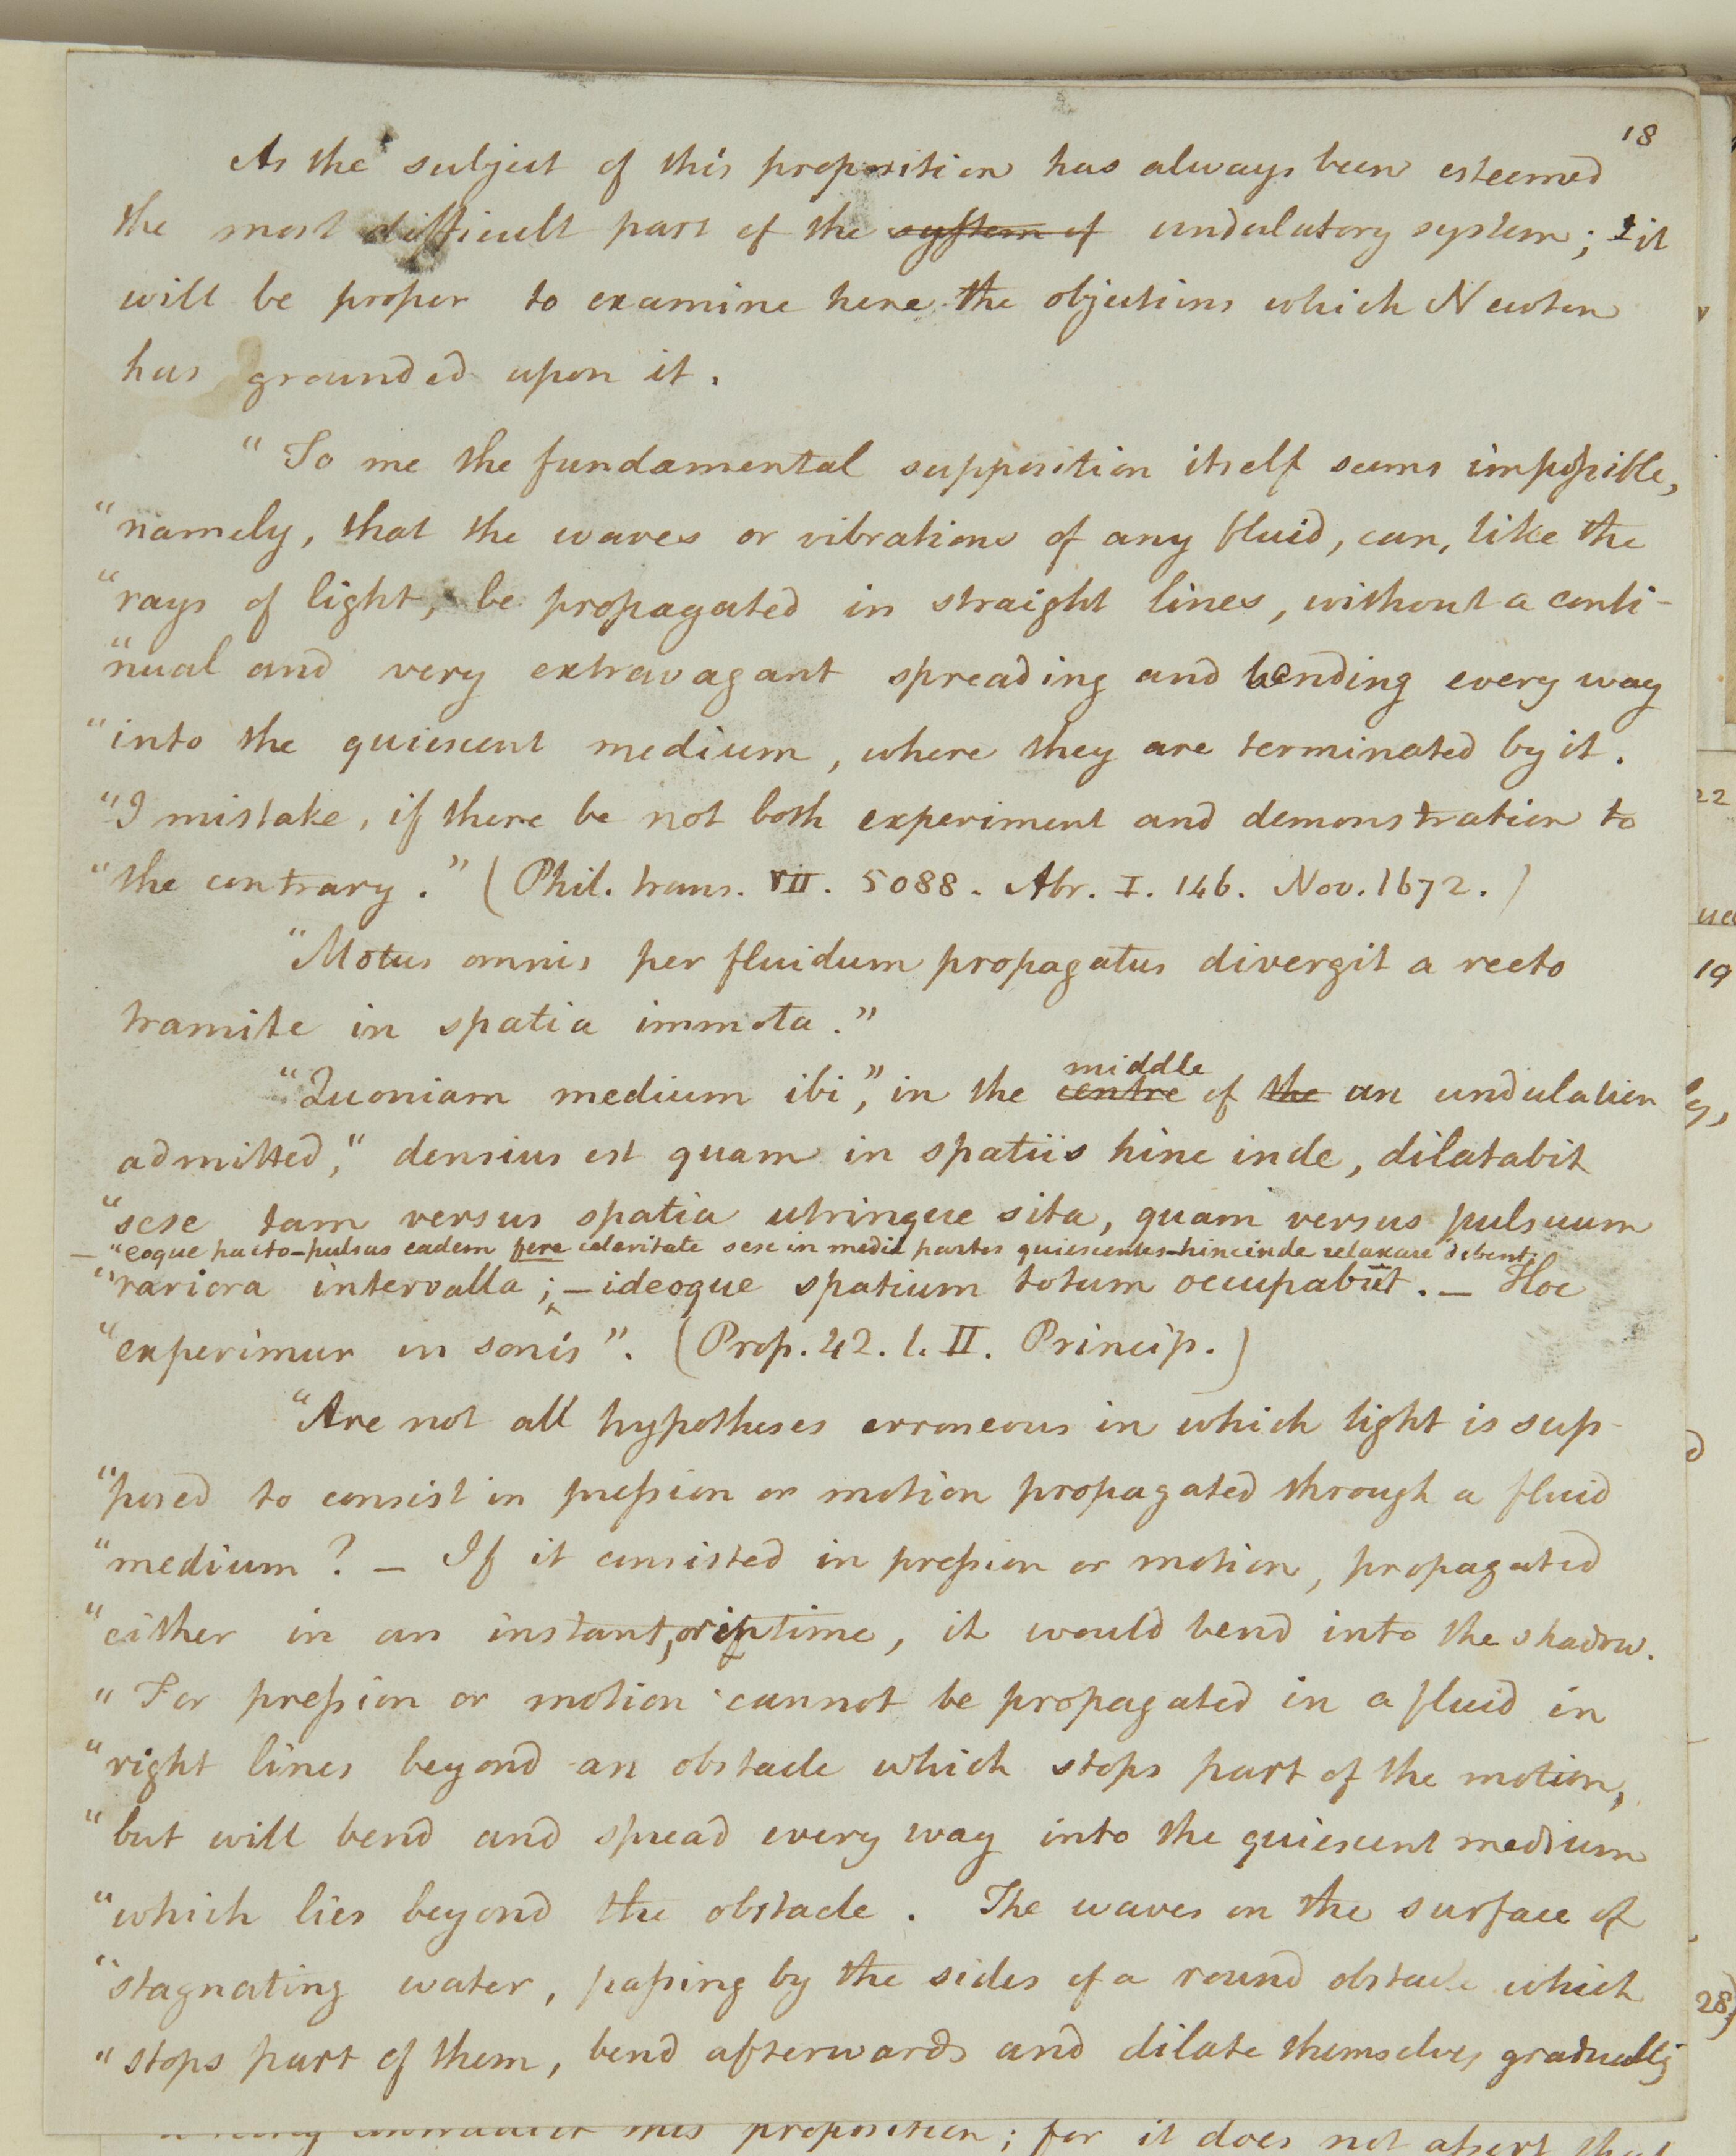 18
As the subject of this proposition has always been esteemed
the most difficult part of the system of undulatory system; it
will be proper to examine here the objections which Newton
has grounded upon it.
"To me the fundamental supposition itself seems impossible,
"namely, that the waves or vibrations of any fluid, can, like the
"rays of light, be propagated in straight lines, without a conti-
"nual and very extravagant spreading and bending every way
"into the quiescent medium, where they are terminated by it.
"I mistake, if there be not both experiment and demonstration to
"the contrary." (Phil. trans. VII. 5088. Abr. I. 146. Nov. 1672.)
"Motus omnis per fluidum propagatus divergit a recto
tramite in spatia immota."
middle
"Quoniam medium ibi," in the centre of the an undulation
admitted, "densius est quam in spatiis hinc inde, dilatabit
"sese tam versus spatia utrinque sita, quam versus pulsuum
— "eoque pacto—pulsus eadem fere celeritate sese in medii partes quiescentes hinc inde relaxare debent;
"rariora intervalla; — ideoque spatium totum occupabunt. — Hoc
"experimur in sonis". (Prop. 42. l. II. Princip.)
"Are not all hypotheses erroneous in which light is sup-
"posed to consist in pression or motion propagated through a fluid
"medium? — If it consisted in pression or motion, propagated
"either in an instant, or in time, it would bend into the shadow.
"For pression or motion cannot be propagated in a fluid in
"right lines beyond an obstacle which stops part of the motion,
"but will bend and spread every way into the quiescent medium
"which lies beyond the obstacle. The waves on the surface of
"stagnating water, passing by the sides of a round obstacle which
"stops part of them, bend afterwards and dilate themselves gradually
this proposition; for it does not assert that
22
19
28